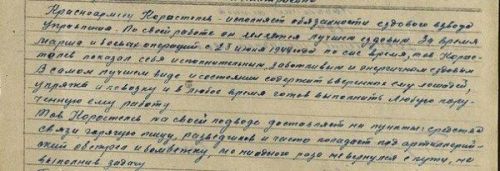 Красноармеец Коростель - исполняет обязанности ездового взвода
Управления. По своей работе он является лучшим ездовым. За время
марша и боевых операций с 23 июня 1944 года по сие время, тов. Корос-
тель показал себя исполнительным, заботливым и энергичным ездовым
В самом лучшем виде и состоянии содержит вверенных ему лошадей,
упряжь и повозку и в любое время готов выполнить любую пору-
ченную ему работу
Тов. Коростель на своей подводе доставляет на пункты: средства
связи горячую пищу, разведчиков и часто попадает под артиллерий-
ский обстрел и бомбежку, но ни одного раза не вернулся с пути, не
выполнив задачу